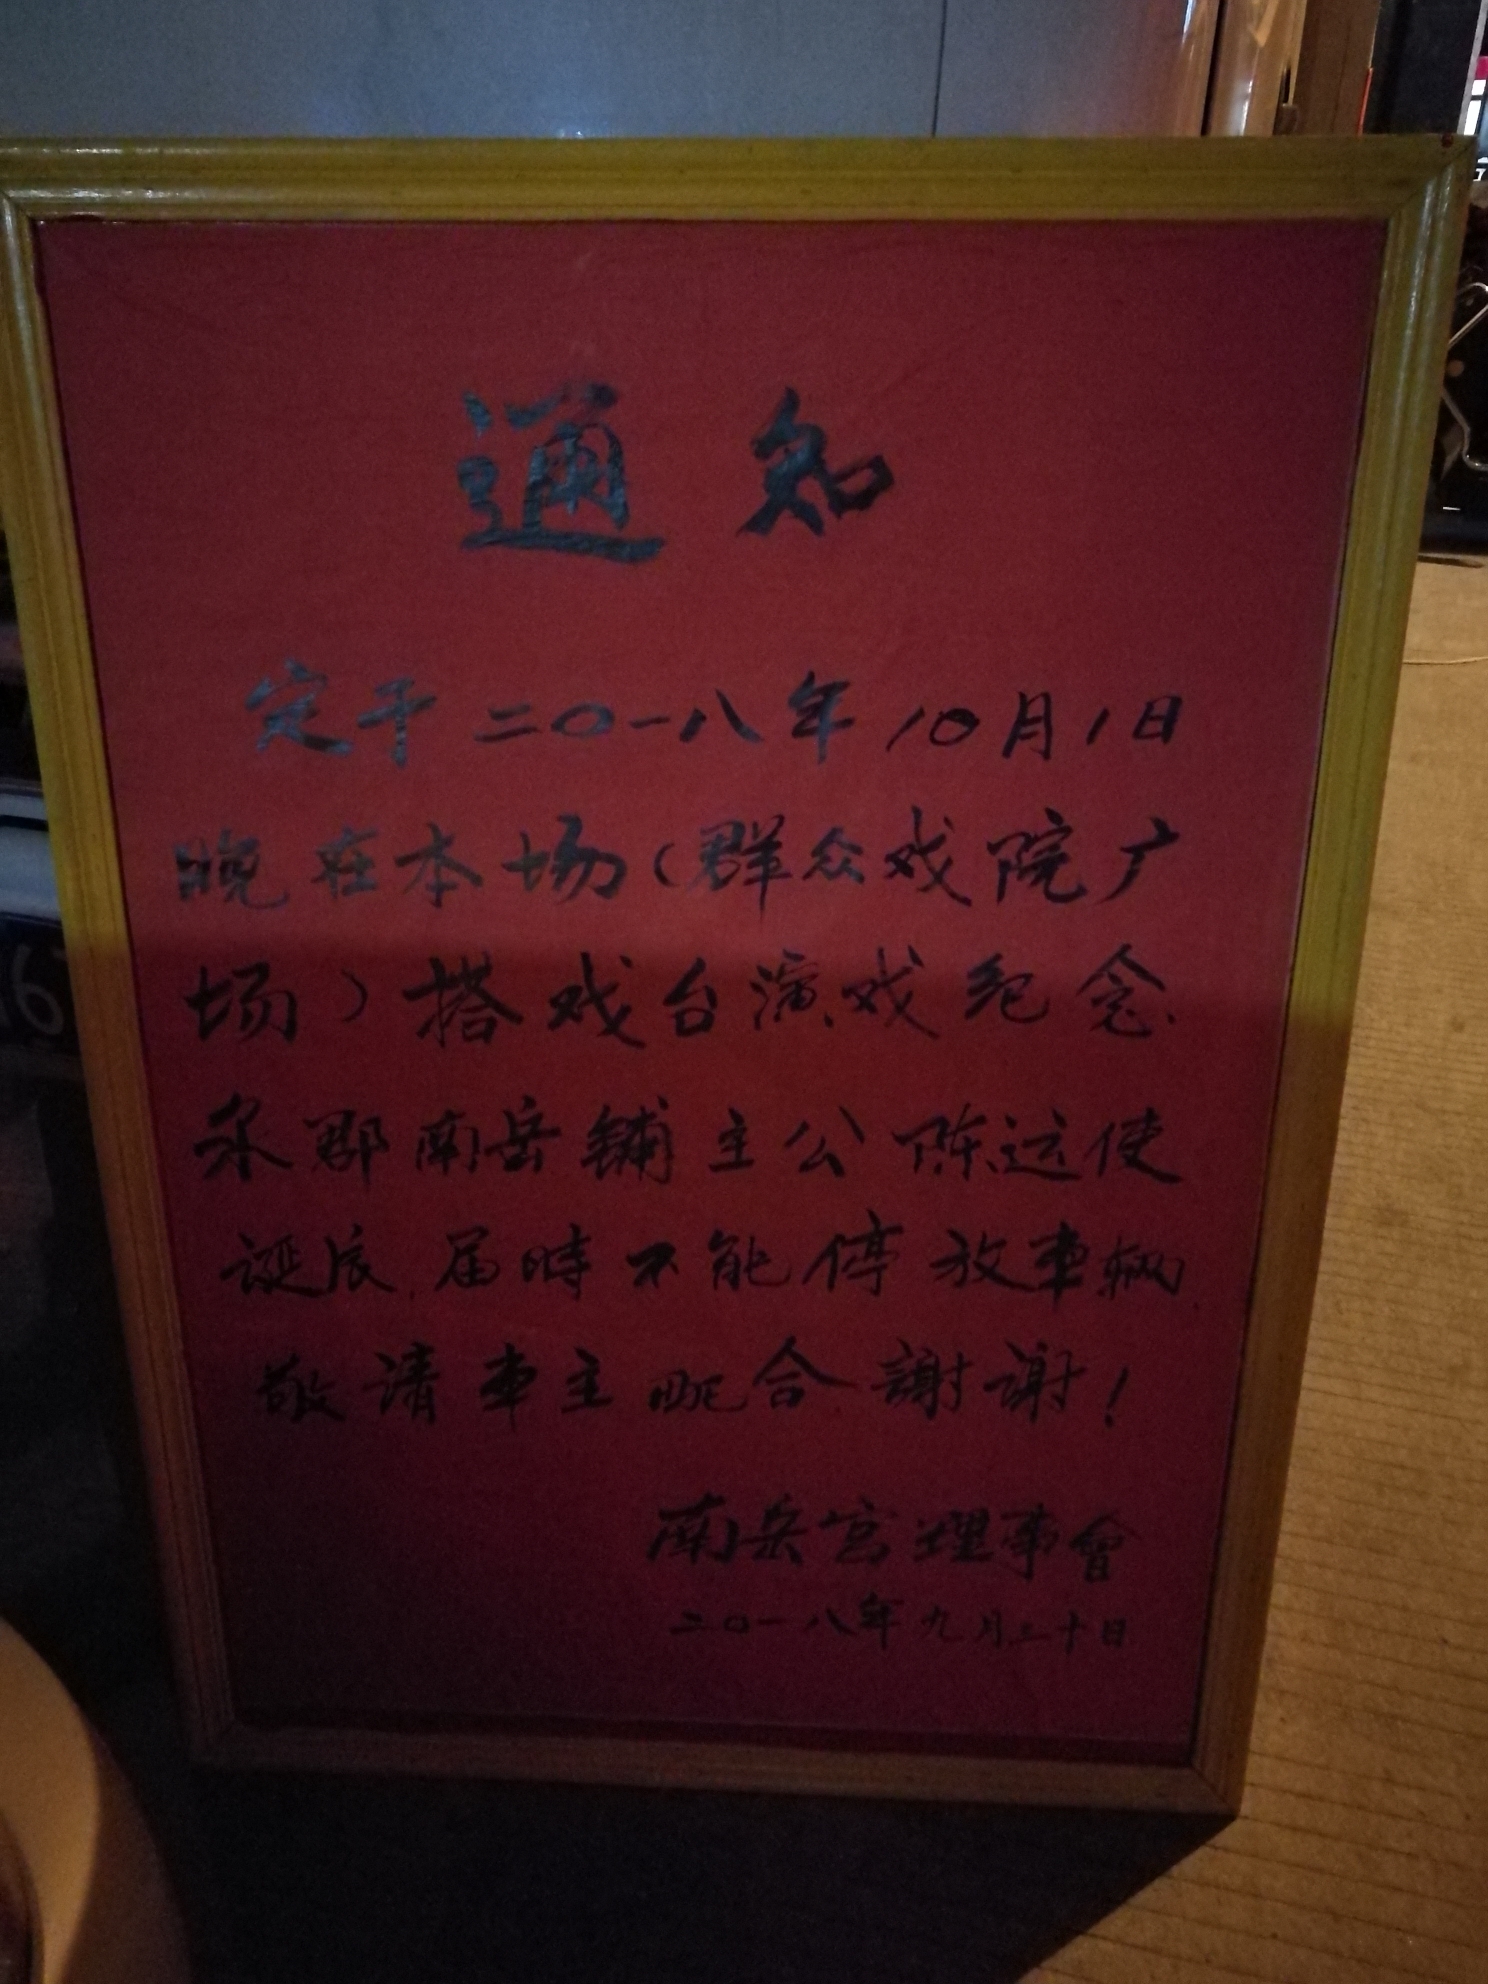 通知
定于二〇一八年10月1日
晚在本场(群众戏院广
场)搭戏台演戏纪念
泉郡南岳铺主公陈运使
诞辰.届時不能停放車辆
敬请車主配合謝谢!
南岳宫理事會
二〇一八年九月三十日